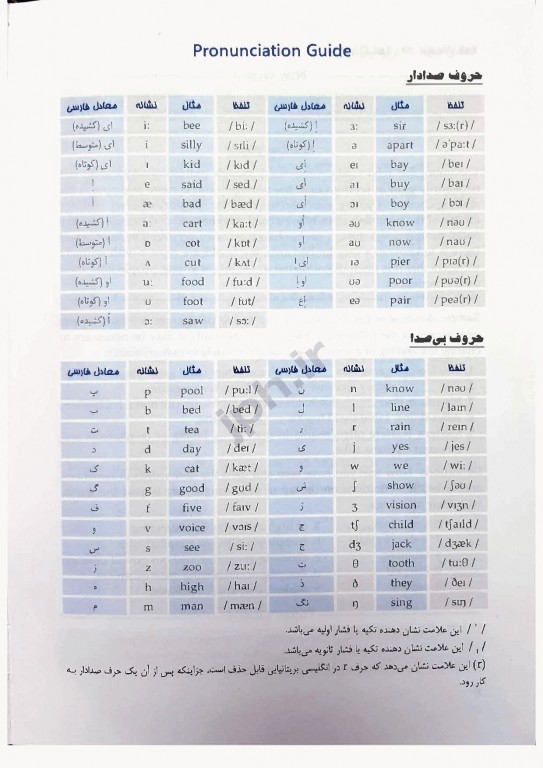 Pronunciation Guide
حروف صدادار
معادل فارسی نشانه مثال تلفظ معادل فارسی نشانه مثال تلفظ
ای (کشیده) i: bee / bi: / اِ (کشیده) ɜ: sir / sɜ:(r) /
ای (متوسط) i silly / sɪli / اِ (کوتاه) ə apart / ə'pa:t /
ای (کوتاه) ɪ kid / kɪd / اِی eɪ bay / beɪ /
اِ e said / sed / آی aɪ buy / baɪ /
اَ æ bad / bæd / اُی ɔɪ boy / bɔɪ /
آ (کشیده) a: cart / ka:t / اُو əʊ know / nəʊ /
آ (متوسط) ɒ cot / kɒt / اَو aʊ now / naʊ /
آ (کوتاه) ʌ cut / kʌt / ای اِ ɪə pier / pɪə(r) /
او (کشیده) u: food / fu:d / او اِ ʊə poor / pʊə(r) /
او (کوتاه) ʊ foot / fʊt/ eə pair / peə(r) /
اُ (کشیده) ɔ: saw / sɔ: /
حروف بی‌صدا
معادل فارسی نشانه مثال تلفظ معادل فارسی نشانه مثال تلفظ
پ p pool / pu:l / ن n know / nəʊ /
ب b bed / bed / ل l line / laɪn /
ت t tea / ti: / ر r rain / reɪn /
د d day / deɪ / ی j yes / jes /
ک k cat / kæt / و w we / wi: /
گ g good / gʊd / ش ʃ show / ʃəʊ /
ف f five / faɪv / ژ ʒ vision / vɪʒn /
و v voice / vɔɪs / چ tʃ child / tʃaɪld /
س s see / si: / ج dʒ jack / dʒæk /
ز z zoo / zu: / ث θ tooth / tu:θ /
ه h high / haɪ / ذ ð they / ðeɪ /
م m man / mæn / نگ ŋ sing / sɪŋ /
/ ˈ / این علامت نشان دهنده تکیه یا فشار اولیه می‌باشد.
/ ˌ / این علامت نشان دهنده تکیه یا فشار ثانویه می‌باشد.
(r) این علامت نشان می‌دهد که حرف r در انگلیسی بریتانیایی قابل حذف است، جزاینکه پس از آن یک حرف صدادار به
کار رود.